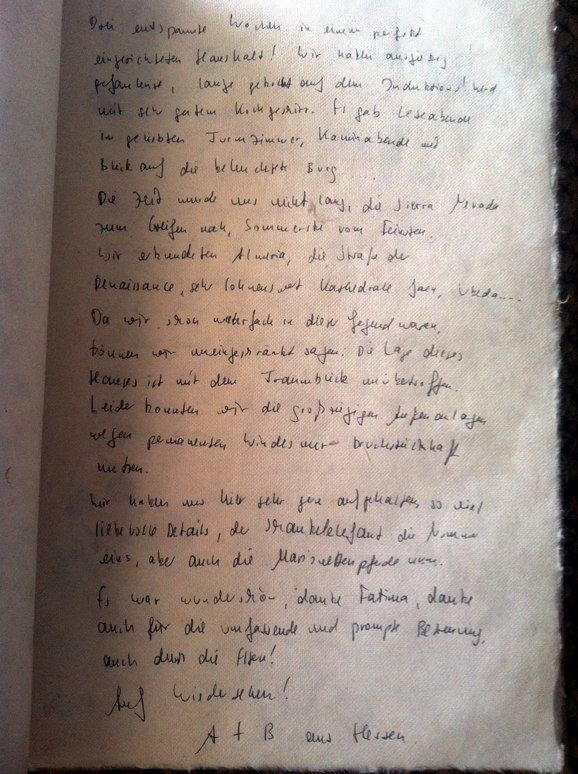 Drei entspannte Wochen in einem perfekt
eingerichteten Haushalt! Wir haben ausgiebig
gefaulenzt, lange gekocht auf dem Induktions! herd
mit sehr gutem Kochgeschirr. Es gab Leseabende
im geliebten Turmzimmer, Kaminabende mit
Blick auf die beleuchtete Burg ...
Die Zeit wurde uns nicht lang, die Sierra Nevada
zum Greifen nah, Sommerski vom Feinsten.
Wir erkundeten Almeria, die Straße der
Renaissance, sehr lohnenswert Kathedrale Jaen, Ubeda....
Da wir schon mehrfach in dieser Gegend waren,
können wir uneingeschränkt sagen: Die Lage dieses
Hauses ist mit dem Traumblick unübertroffen.
Leider konnten wir die großzügigen Außenanlagen
wegen permanenten Windes nur bruchstückhaft
nutzen.
Wir haben uns hier sehr gern aufgehalten, so viel
liebevolle Details, der Schaukelelefant die Nummer
eins, aber auch die Marionettenpferde
Es war wunderschön, danke Fatima, danke
auch für die umfassende und prompte Betreuung,
auch durch die Elfen!
Auf Wiedersehen!
A + B aus Hessen.